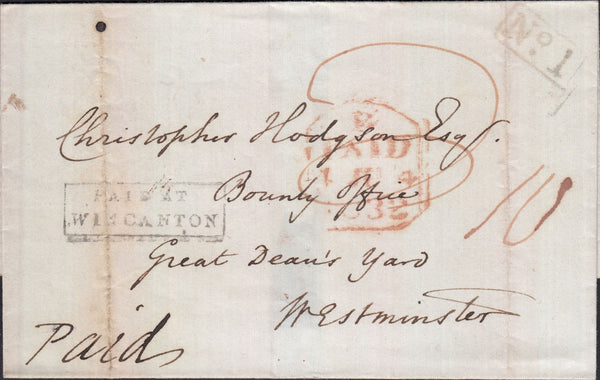 No. 1
Christopher Hodgson Esq.
PAID
1832
PAID AT
WINCANTON
Bounty Office
10
Great Dean's Yard
Westminster
Paid